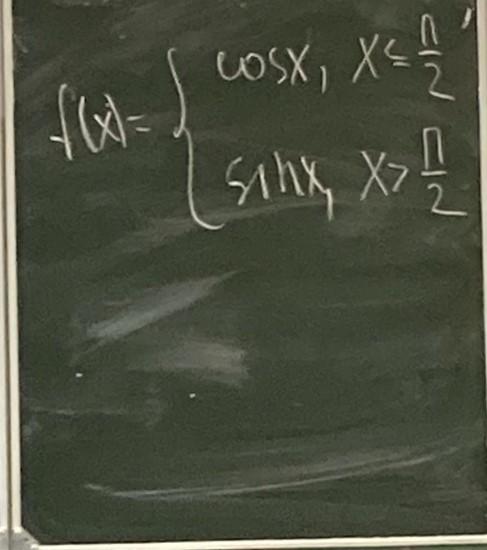 f(x)= { cosx, x ≤ π/2
sinx, x > π/2